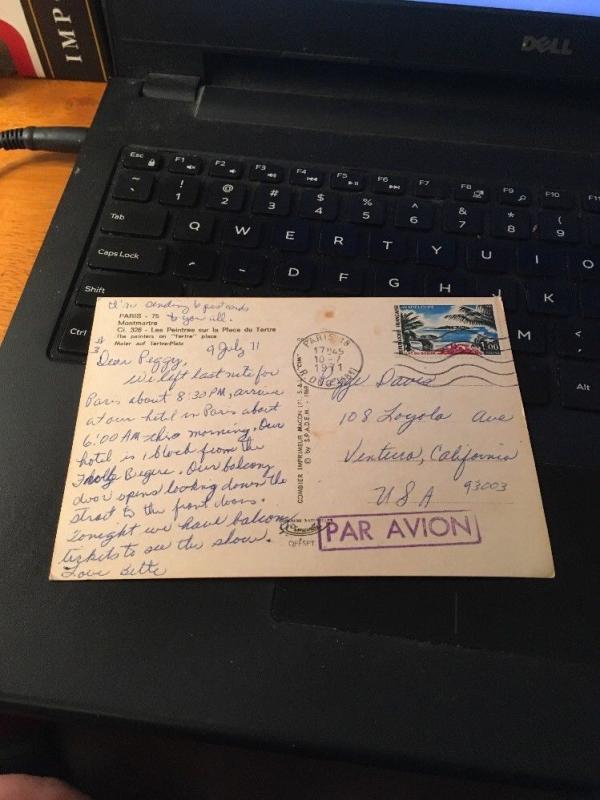 IMP
DELL
Esc F1 F2 F3 F4 F5 F6 F7 F8 F9 F10 F11
~ ` ! 1 @ 2 # 3 $ 4 % 5 ^ 6 & 7 * 8 ( 9
Tab Q W E R T Y U I O
Caps Lock D F G H J K
Shift
Ctrl
Alt
I'm sending 6 postcards
to you all.
PARIS - 75
Montmartre
Ci. 326 - Les Peintres sur la Place du Tertre
The painters on "Tertre" place
Maler auf TertrePlatz
# 3
9 July 71
Dear Peggy,
We left last nite for
Paris about 8:30 PM, arrive
at our hotel in Paris about
6:00 AM this morning. Our
hotel is 1 block from the
Our balcony
door opens looking down the
to the front doors.
Tonight we have balcony
tickets to see the show.
Love Bette
COMBIER IMPRIMEUR MACON
© by S.P.A.D.E.M.
OFFSET
PARIS 18
17H45
10 - 7
1971
1,00
Peggy Davis
108 Loyola Ave
Ventura, California
USA 93003
PAR AVION